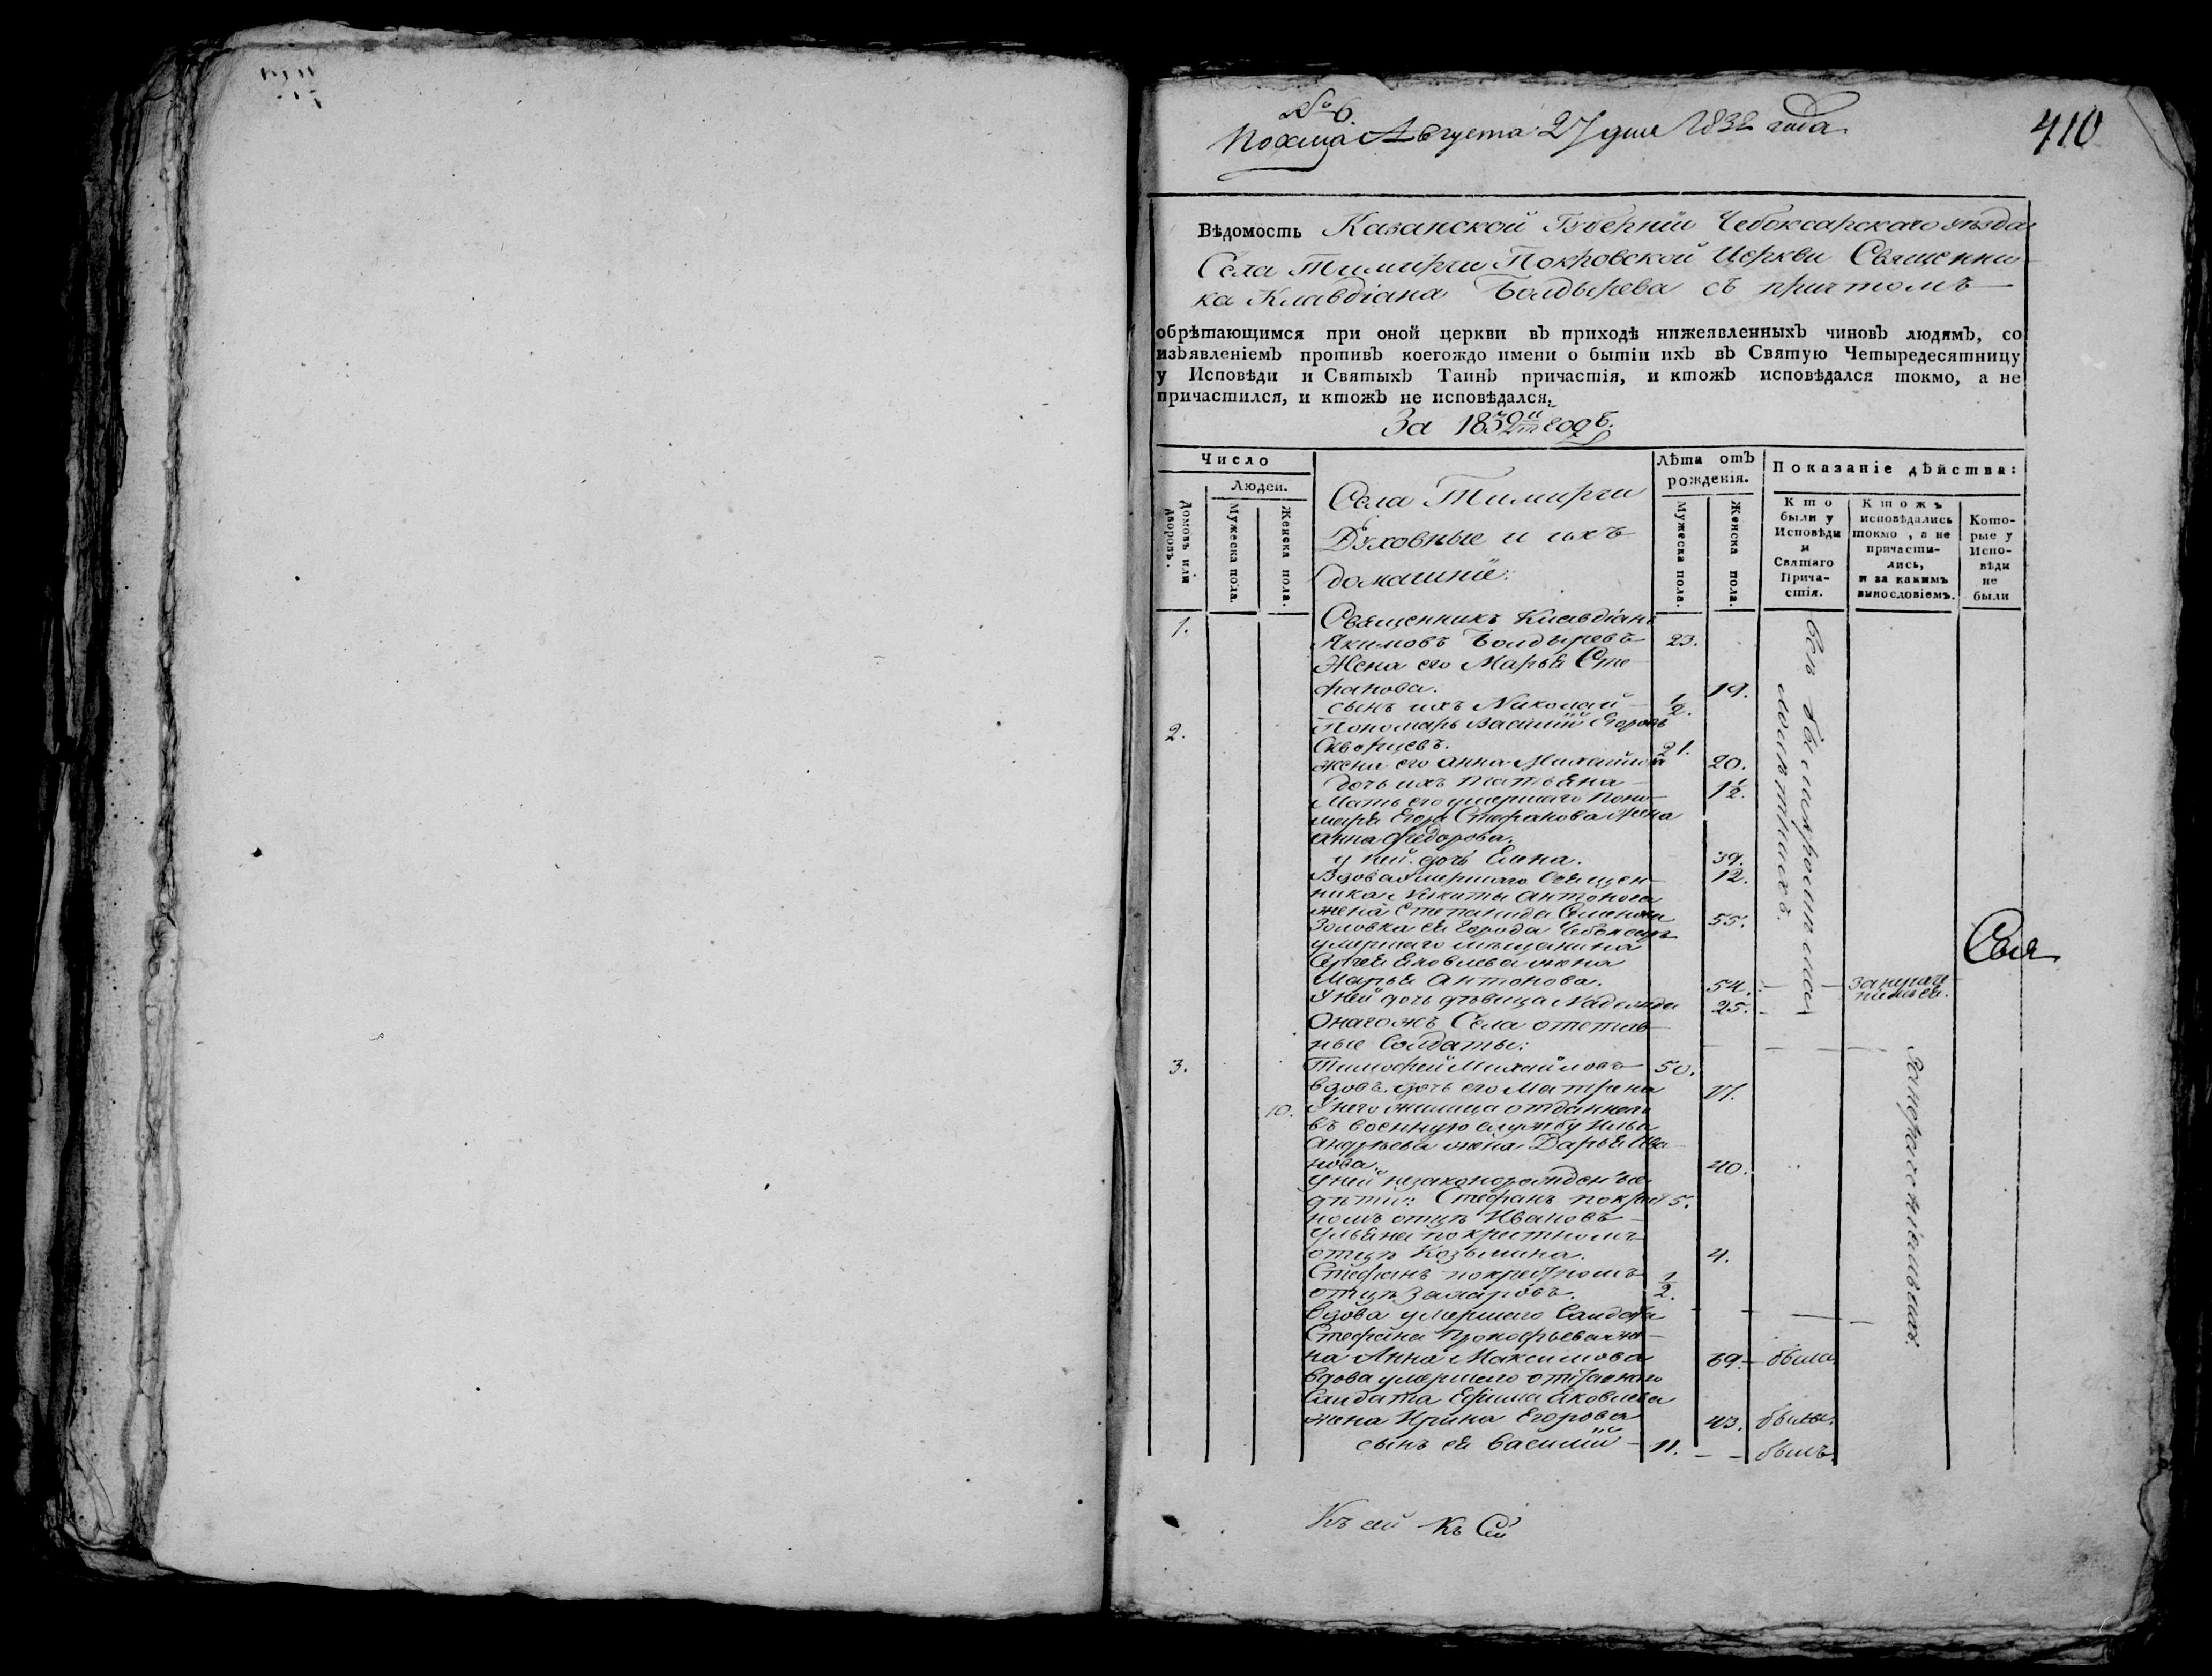 № 6.
Августа 27 дня 1832 года
410
Вѣдомость Казанской Губерніи Чебоксарскаго уѣзда
Села Тимирчи Покровской Церкви Священни
ка Клавдіана Болдырева съ причтомъ
обрѣтающимся при оной церкви въ приходѣ нижеявленныхъ чиновъ людямъ, со
изъявленіемъ противъ коегождо имени о бытіи ихъ въ Святую Четыредесятницу
у Исповѣди и Святыхъ Таинъ причастія, и ктожъ исповѣдался токмо, а не
причастился, и ктожъ не исповѣдался.
За 1832й годъ.
Число
Людей.
Домовъ или дворовъ.
Мужеска пола.
Женска пола.
Села Тимирчи
Духовные и ихъ
домашніе:
Лѣта отъ рожденія.
Мужеска пола.
Женска пола.
Показаніе дѣйства:
Кто были у Исповѣди и Святаго Прича-стія.
Ктожъ исповѣдались токмо, а не причасти-лись, и за какимъ винословіемъ.
Кото-рые у Испо-вѣди не были
1. Священникъ Клавдіанъ
Якимовъ Болдыревъ 23.
Жена его Марья Сте
фанова. 19.
сынъ ихъ Николай 1/2.
2. Пономарь Василій Егоровъ
Скворцевъ. 21.
жена его Анна Михайлова 20.
дочь ихъ Татьяна 1 1/2.
Мать его умершаго поно
маря Егора Стефанова жена
Анна Федорова. 39.
у ней дочь Елена. 12.
Вдова умершаго Священ
ника Никиты Антонова
жена Степанида Семенова 55.
Золовка ея города Чебоксаръ
умершаго мѣщанина
Сергея Яковлева жена
Марья Антонова. 54.
У ней дочь дѣвица Надежда 25.
всѣ были кромѣ
Оногожъ Села отстав
ные Солдаты:
3. Тимофей Михайловъ 50.
вдовъ. дочь его Матрена
10. У него жилица отданнаго
въ военную службу Ильи
Андрѣева жена Дарья Ива
нова. 40.
У ней незаконорожденые
дѣти: Стефанъ по крест 5.
номъ отцѣ Ивановъ
Ульяна по крестномъ
отцѣ Козьмина. 4.
Стефанъ по крестномъ 1/2.
отцѣ Захаровъ.
Вдова умершаго Салдата
Стефана Прокофьева же
на Анна Максимова 69. была.
Вдова умершаго отставнаго
Салдата Ефима Яковлева
жена Ирина Егорова 43. была.
сынъ ея Василій 11. былъ
Свя